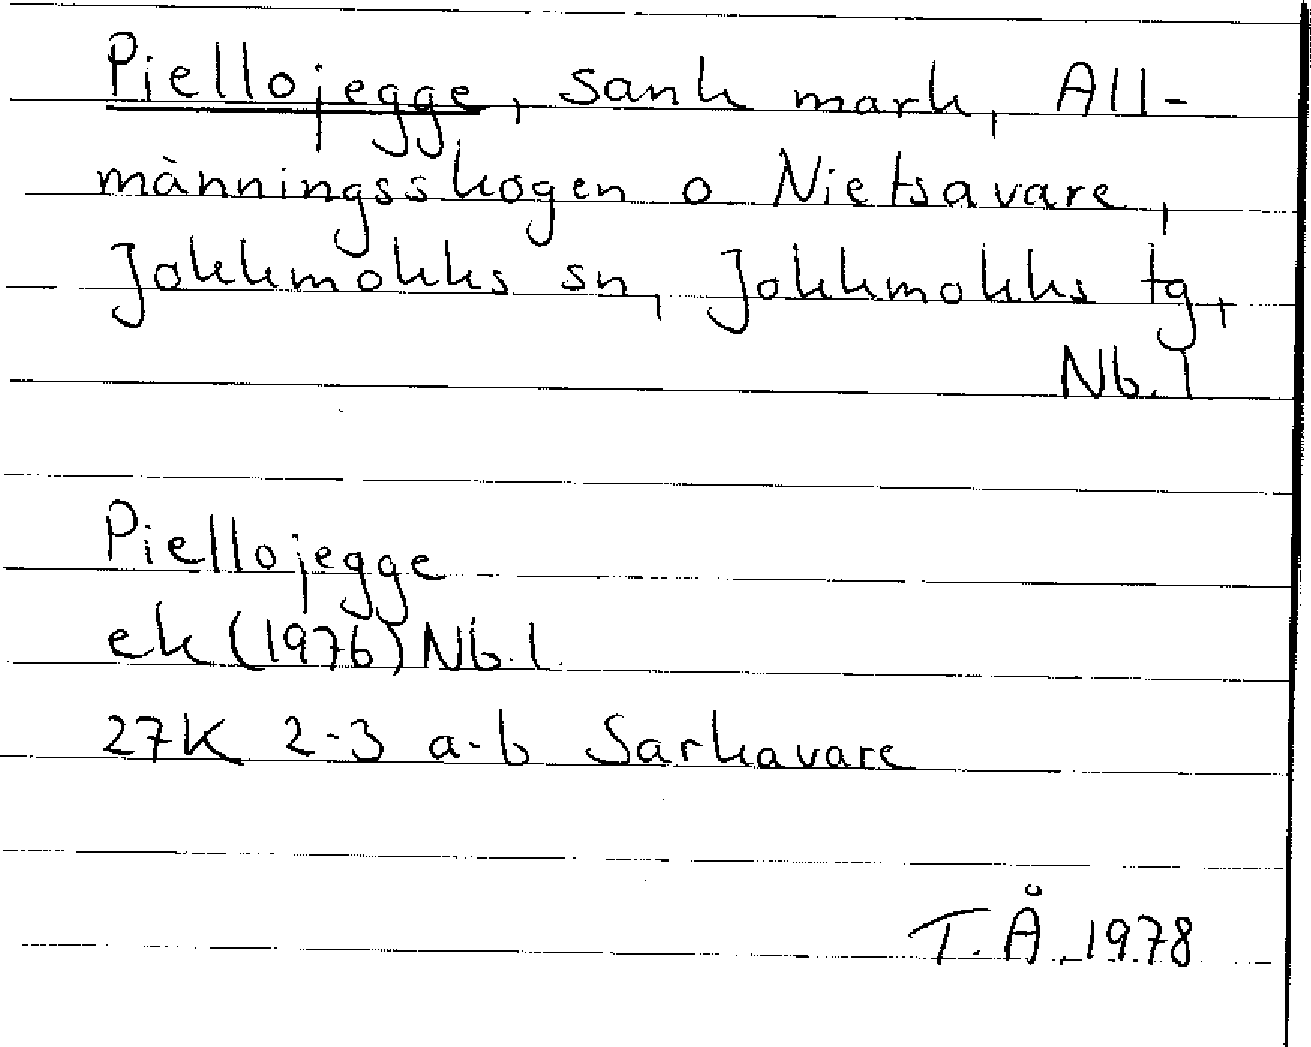 Piellojegge, sank mark, All-
männingsskogen o Nietsavare,
Jokkmokks sn, Jokkmokks tg,
Nb. l
Piellojegge
ek (1976) Nb. l
27K 2-3 a-b Sarkavare
T. Å. 1978